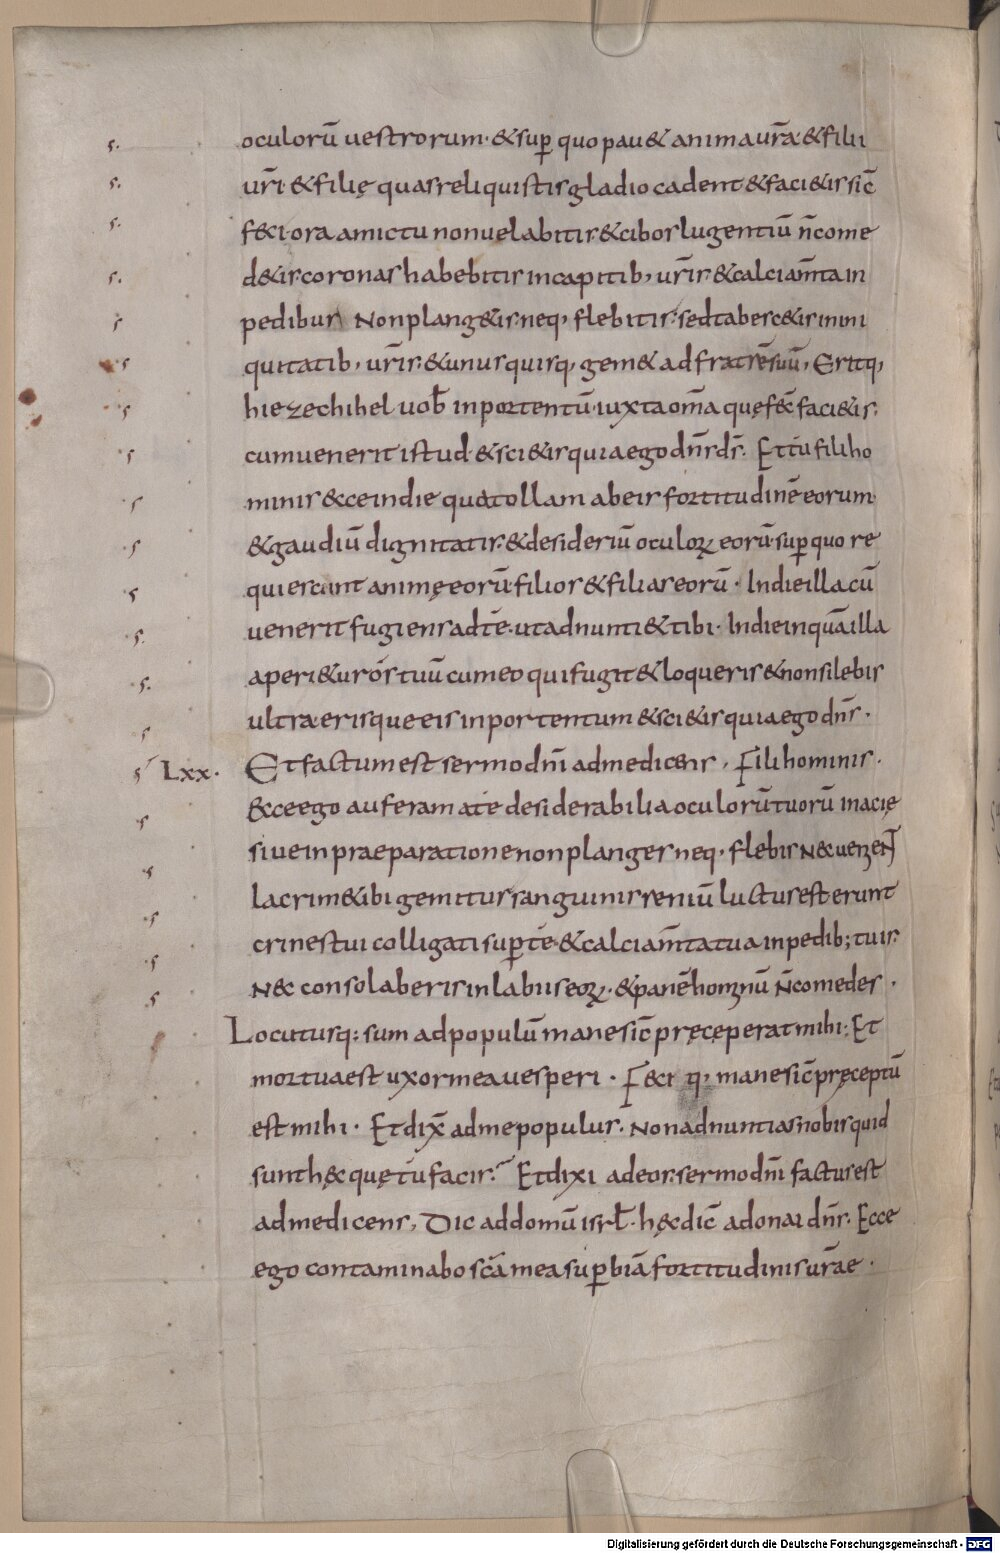 oculorū vestrorum· & suꝑ quo pau& anima ur̄a· & filii
ur̄i & filię quas reliquistis gladio cadent & faci&is sic̄
feci· ora amictu non uelabitis & cibos lugentiū n̄ come
d&is· coronas habebitis in capitib; ur̄is· & calciam̄ta in
pedibus Non plang&is· neq; flebitis· sed tabesc&is in ini
quitatib; ur̄is· & unusquisq; gem& ad fratrē suū, Eritq;
hiezechihel uob̄ in portentū· iuxta om̄a quę fec̄ faci&is·
cum uenerit istud· & sci&is quia ego dn̄s ds̄. Et tu fili ho
minis &ce in die qua tollam ab eis fortitudinē eorum·
& gaudiū dignitatis· & desideriū oculoꝝ eorū· suꝑ quo re
quiescunt animę eorū· filios & filias eorū· In die illa cū
uenerit fugiens ad te· ut adnunti& tibi· In die inquā illa
aperi&ur os tuū cum eo qui fugit & loqueris & non silebis
ultra· erisque eis in portentum & sci&is quia ego dn̄s·
Lxx· Et factum est sermo dn̄i ad me dicens, Fili hominis·
&ce ego auferam a te desiderabilia oculorū tuorū in acię
siue in praeparatione non planges neq; flebis N& uenient
lacrim& ibi gemitus sanguinis reniū luctus est erunt
crines tui colligati suꝑ te· & calciam̄ta tua in pedib; tuis·
N& consolaberis in labiis eoꝝ· & panē hominū n̄ comedes·
Locutusq: sum ad populū mane sic̄ pręceperat mihi: Et
mortua est uxor mea uesperi· Feciq; mane sic̄ pręceptū
est mihi· Et dix̄ ad me populus· Non adnuntias nobis quid
sunt hęc quę tu facis· Et dixi ad eos· sermo dn̄i factus est
ad me dicens, Dic ad domū isrl̄· hęc dic̄ adonai dn̄s· Ecce
ego contaminabo scā mea suꝑbiā fortitudinis ur̄ae·
Digitalisierung gefördert durch die Deutsche Forschungsgemeinschaft - DFG